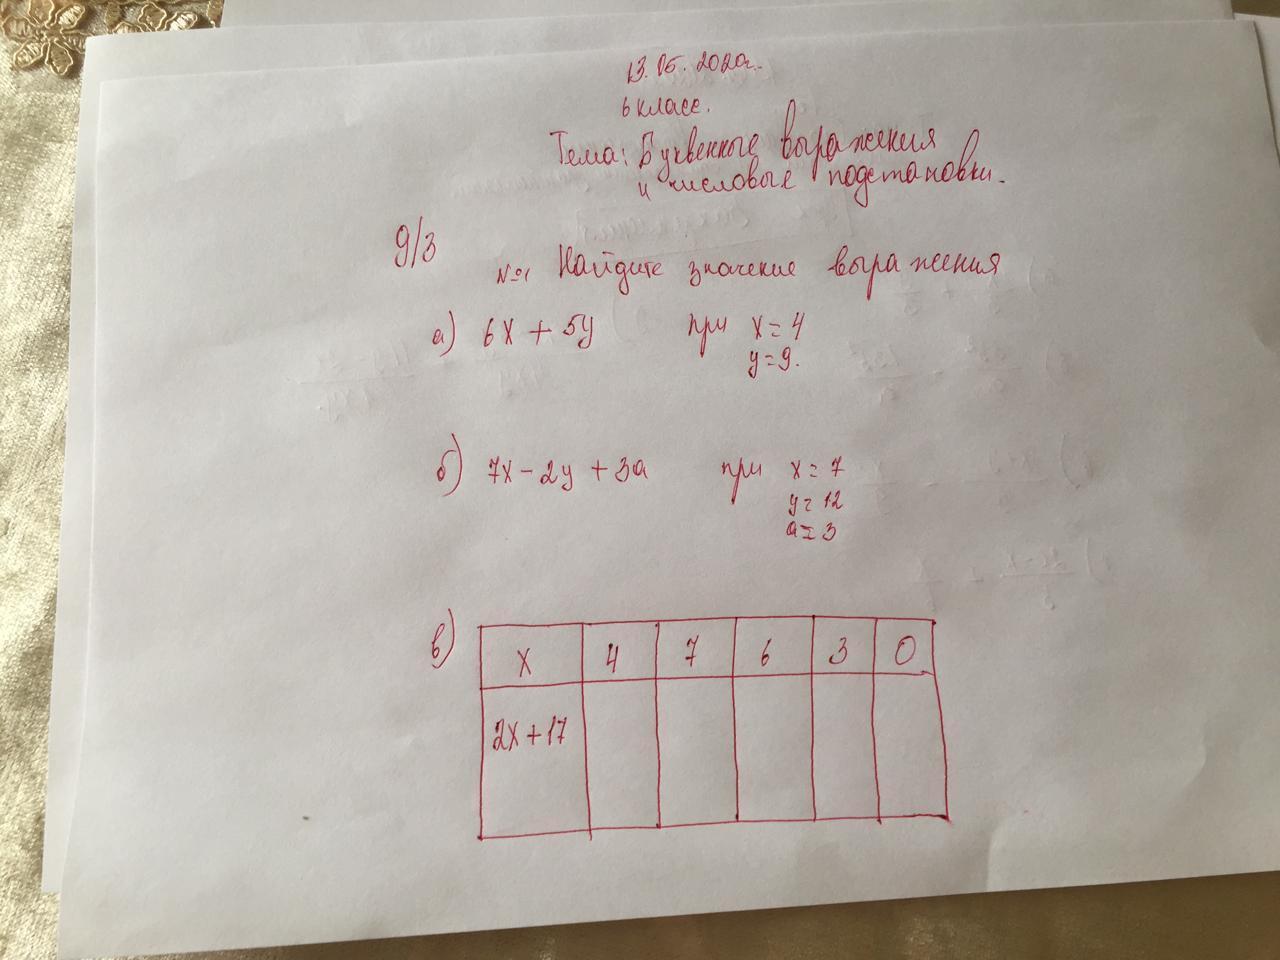 13.05.2020г.
6 класс.
Тема: Буквенные выражения
и числовые подстановки.
д/з
№1 Найдите значение выражения
а) 6x + 5y при x = 4
y = 9.
б) 7x - 2y + 3a при x = 7
y = 12
a = 3
в) x 4 7 6 3 0
2x + 17